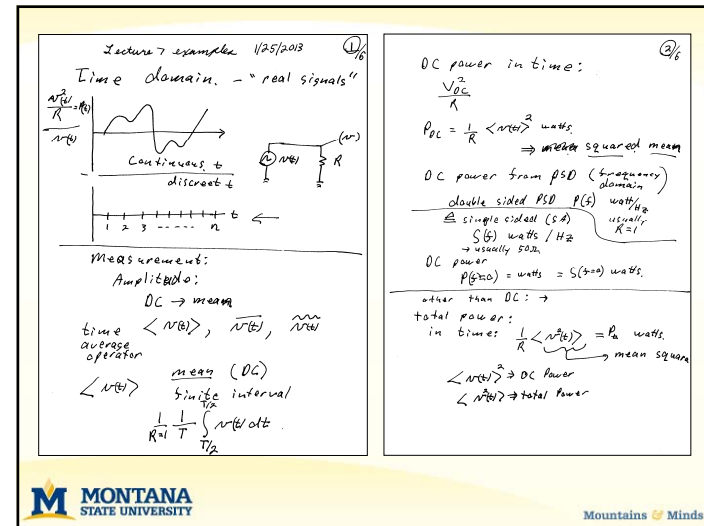 Lecture 7 examples 1/25/2013 1/6
Time domain. - "real signals"
v²(t)/R = P(t)
v(t)
(v)
v(t) R
Continuous t
discreet t
1 2 3 ----- n t
Measurement:
Amplitude:
DC → mean
time average operator <v(t)>, v(t), v(t)
<v(t)> mean (DC)
finite interval
1/R=1 1/T ∫ T/2 T/2 v(t) dt
2/6
DC power in time:
V²DC/R
PDC = 1/R <v(t)>² watts.
⇒ squared mean
DC power from PSD (frequency domain)
double sided PSD P(f) watt/Hz
usually R=1
≜ single sided (SA)
S(f) watts / Hz
→ usually 50Ω
DC power
P(f=0) = watts = S(f=0) watts.
other than DC: →
total power:
in time: 1/R <v²(t)> = Pt watts.
→ mean square
<v(t)>² ⇒ DC Power
<v²(t)> ⇒ total Power
M MONTANA
STATE UNIVERSITY
Mountains & Minds